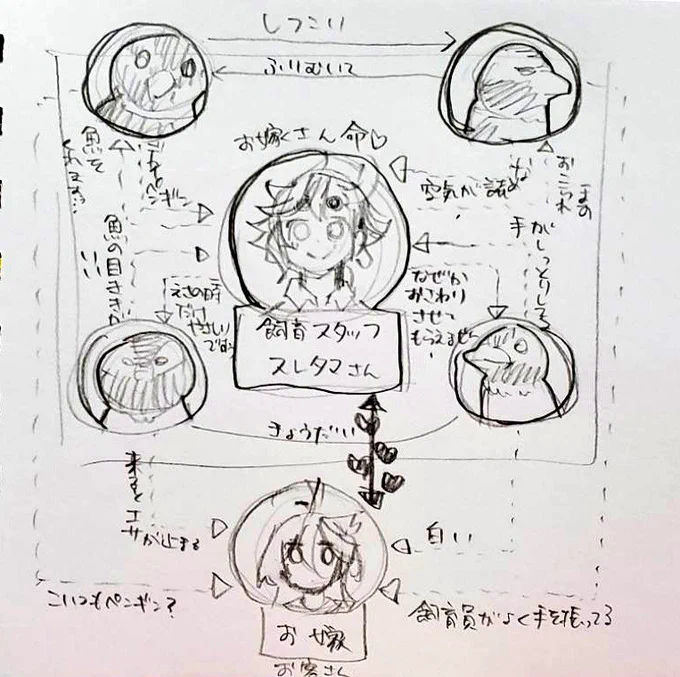 しつこい
ふりむいて
お嫁くさん 命♡
魚を
空気が読め
手の
魚の目きき
いい
手
がしっとりしてる
えさの時
だけ
やさしい
なぜか
おさわり
させて
もらえません
!
飼育スタッフ
スレタマさん
きょうだい
来るとエサが止まる
白い
こいつもペンギン?
飼育員がよく手を振ってる
お嫁
お客さん